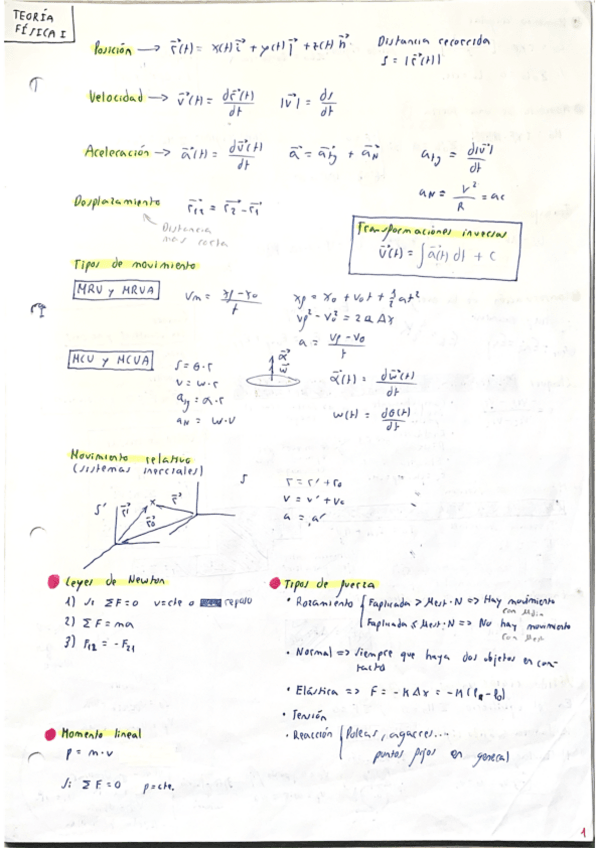 TEORÍA
FÍSICA I
Posición → r⃗(t) = x(t) i⃗ + y(t) j⃗ + z(t) k⃗
Distancia recorrida
s = |r⃗(t)|
Velocidad → v⃗(t) = dr⃗(t)/dt |v⃗| = ds/dt
Aceleración → a⃗(t) = dv⃗(t)/dt a⃗ = a⃗tg + a⃗N atg = d|v⃗|/dt
aN = v²/R = ac
Desplazamiento r⃗12 = r⃗2 - r⃗1
Distancia
mas corta
Transformaciones inversas
v⃗(t) = ∫ a⃗(t) dt + c
Tipos de movimiento
MRU y MRUA
vm = xf - x0 / t
xf = x0 + v0t + ½at²
vf² - v0² = 2aΔx
a = vf - v0 / t
MCU y MCUA
s = θ·r
v = w·r
atg = α·r
aN = w·v
α⃗
w⃗
α⃗(t) = dw⃗(t)/dt
w(t) = dθ(t)/dt
Movimiento relativo
(sistemas inerciales)
S
S'
x
r⃗'
r⃗
r⃗0
r = r' + r0
v = v' + v0
a = a'
Leyes de Newton
1) Si ΣF=0 v=cte o reposo
2) ΣF = ma
3) F12 = -F21
Tipos de fuerza
• Rozamiento { Faplicada > Mest·N => Hay movimiento
con Mdin
Faplicada ≤ Mest·N => No hay movimiento
con Mest
• Normal => siempre que haya dos objetos en con-
tacto
• Elástica => F = -KΔx = -K(l - l0)
• Tensión
• Reacción { Poleas, agarres...
puntos fijos en general
Momento lineal
p = m·v
Si ΣF=0 p=cte.
1